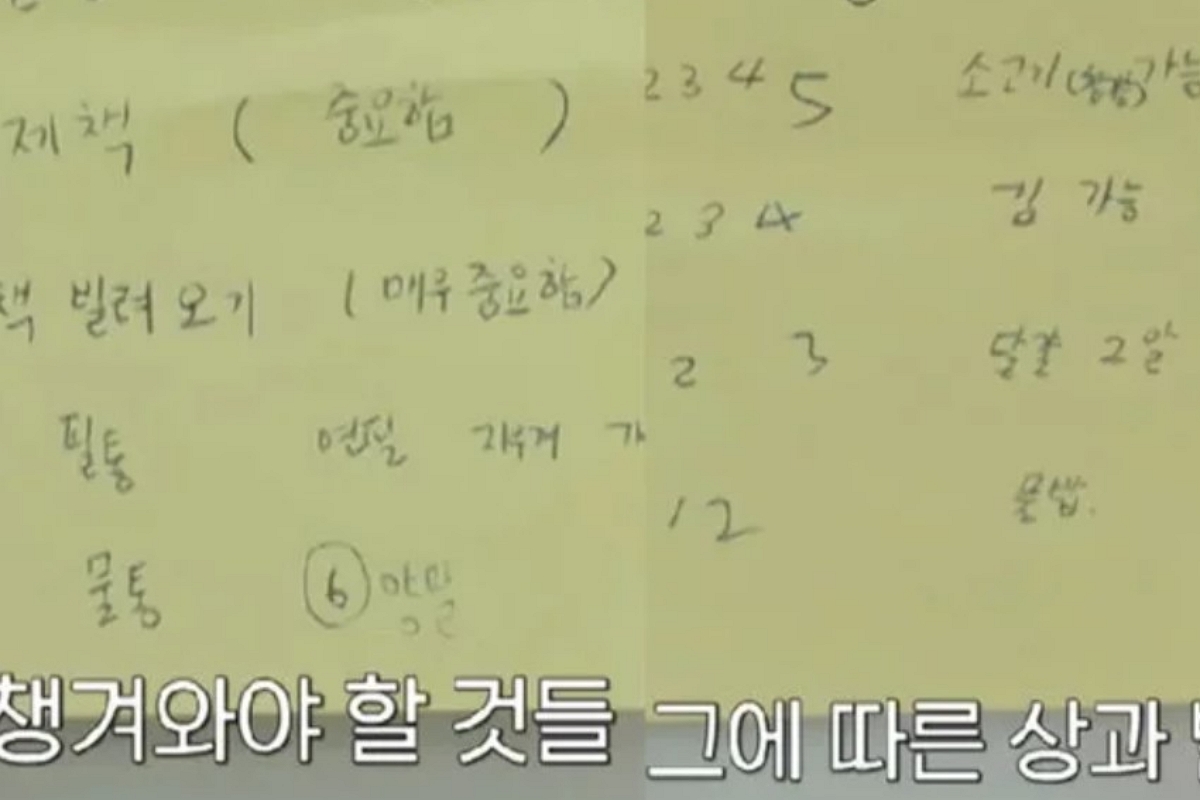 제책 ( 중요함 )
책 빌려오기 (매우중요함)
필통 연필 지우개 가
물통 ⑥ 양말
챙겨와야 할 것들
2 3 4 5 소고기 가능
2 3 4 김 가능
2 3 달걀 2알
1 2 물밥.
그에 따른 상과